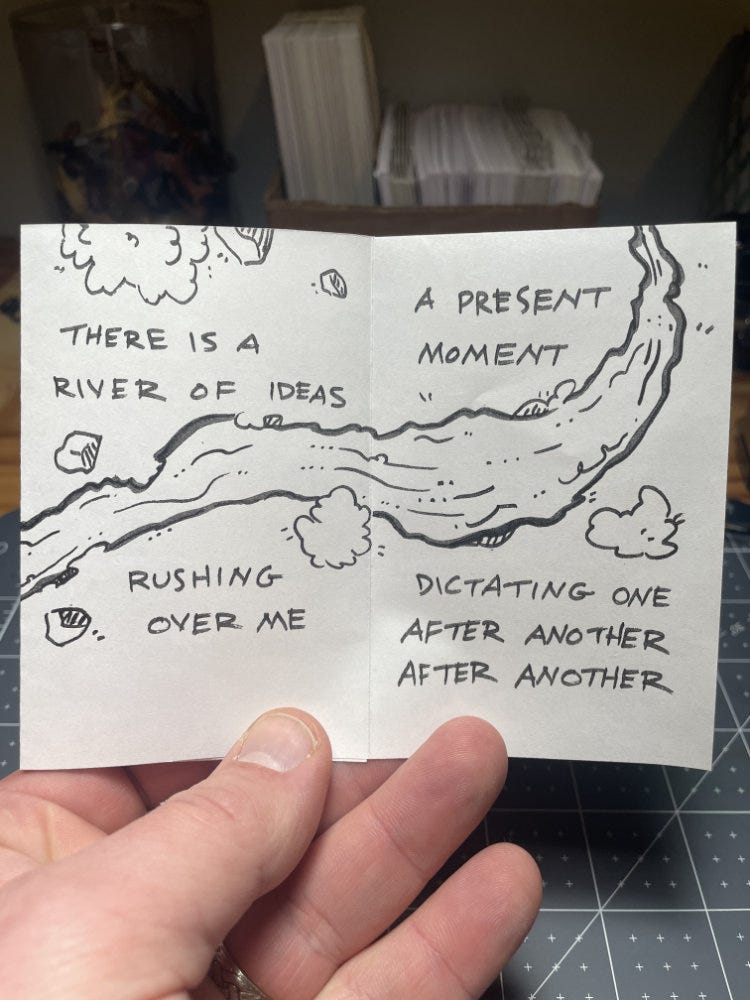 THERE IS A
RIVER OF IDEAS
RUSHING
OVER ME
A PRESENT
MOMENT
DICTATING ONE
AFTER ANOTHER
AFTER ANOTHER